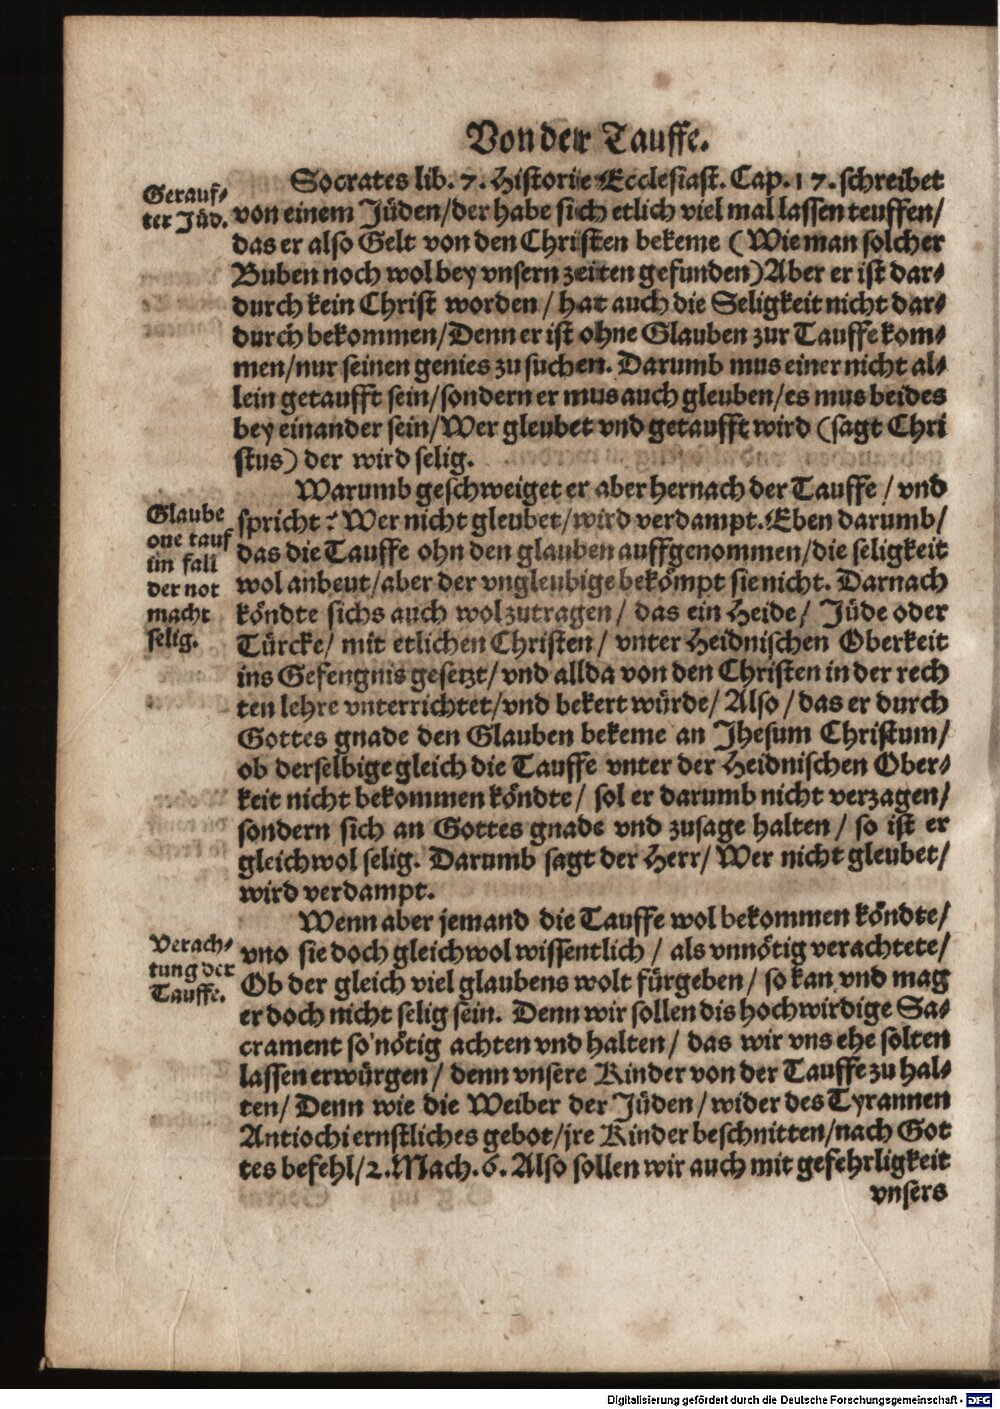 Von der Tauffe.
Socrates lib. 7. Historiæ Ecclesiast. Cap. 17. schreibet
Getauf⸗
ter Jüd.
von einem Jüden/der habe sich etlich viel mal lassen teuffen/
das er also Gelt von den Christen bekeme (Wie man solcher
Buben noch wol bey vnsern zeiten gefunden) Aber er ist dar⸗
durch kein Christ worden / hat auch die Seligkeit nicht dar⸗
durch bekommen/Denn er ist ohne Glauben zur Tauffe kom⸗
men/nur seinen genies zu suchen. Darumb mus einer nicht al⸗
lein getaufft sein/sondern er mus auch gleuben/es mus beides
bey einander sein/Wer gleubet vnd getaufft wird (sagt Chri
stus) der wird selig.
Warumb geschweiget er aber hernach der Tauffe / vnd
Glaube
one tauf
im fall
der not
macht
selig.
spricht: Wer nicht gleubet/wird verdampt. Eben darumb/
das die Tauffe ohn den glauben auffgenommen/die seligkeit
wol anbeut/aber der vngleubige bekömpt sie nicht. Darnach
köndte sichs auch wol zutragen / das ein Heide/ Jüde oder
Türcke/ mit etlichen Christen / vnter Heidnischen Oberkeit
ins Gefengnis gesetzt/ vnd allda von den Christen in der rech
ten lehre vnterrichtet/vnd bekert würde/ Also / das er durch
Gottes gnade den Glauben bekeme an Jhesum Christum/
ob derselbige gleich die Tauffe vnter der Heidnischen Ober⸗
keit nicht bekommen köndte/ sol er darumb nicht verzagen/
sondern sich an Gottes gnade vnd zusage halten / so ist er
gleichwol selig. Darumb sagt der Herr/ Wer nicht gleubet/
wird verdampt.
Wenn aber jemand die Tauffe wol bekommen köndte/
Verach⸗
tung der
Tauffe.
vnd sie doch gleichwol wissentlich / als vnnötig verachtete/
Ob der gleich viel glaubens wolt fürgeben / so kan vnd mag
er doch nicht selig sein. Denn wir sollen dis hochwirdige Sa⸗
crament so nötig achten vnd halten / das wir vns ehe solten
lassen erwürgen / denn vnsere Kinder von der Tauffe zu hal⸗
ten/ Denn wie die Weiber der Jüden / wider des Tyrannen
Antiochi ernstliches gebot/jre Kinder beschnitten/nach Got
tes befehl/2. Mach. 6. Also sollen wir auch mit gefehrligkeit
vnsers
Digitalisierung gefördert durch die Deutsche Forschungsgemeinschaft - DFG